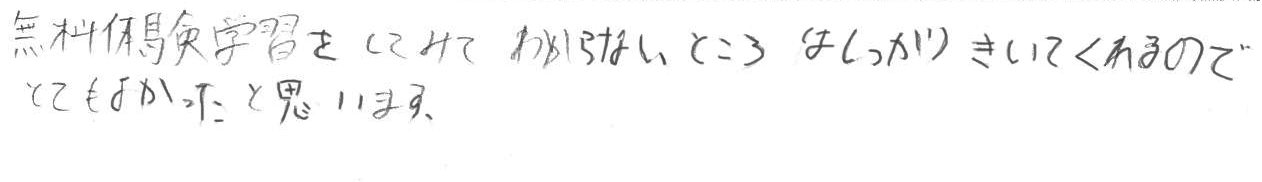 無料体験学習をしてみて わからないところ はしっかり きいてくれるので
とてもよかったと思います。